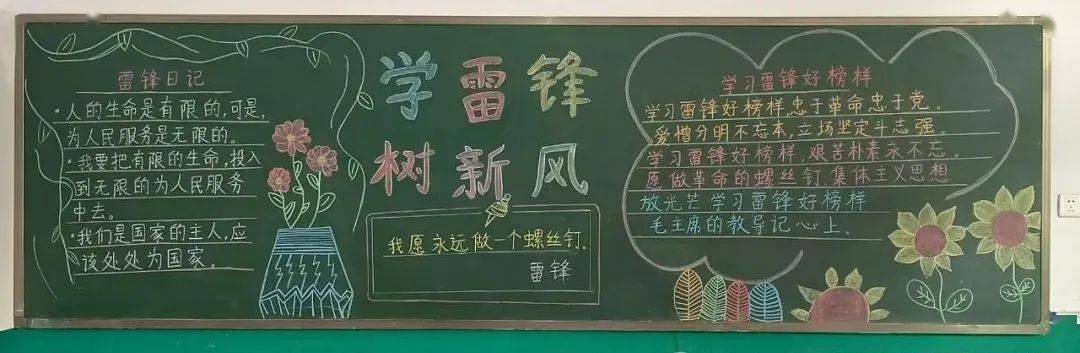 雷锋日记
·人的生命是有限的,可是,
为人民服务是无限的。
·我要把有限的生命,投入
到无限的为人民服务
中去。
·我们是国家的主人,应
该处处为国家。
学雷锋
树新风
我愿永远做一个螺丝钉.
雷锋
学习雷锋好榜样
学习雷锋好榜样,忠于革命忠于党。
爱憎分明不忘本,立场坚定斗志强。
学习雷锋好榜样,艰苦朴素永不忘。
愿做革命的螺丝钉集体主义思想
放光芒学习雷锋好榜样
毛主席的教导记心上。